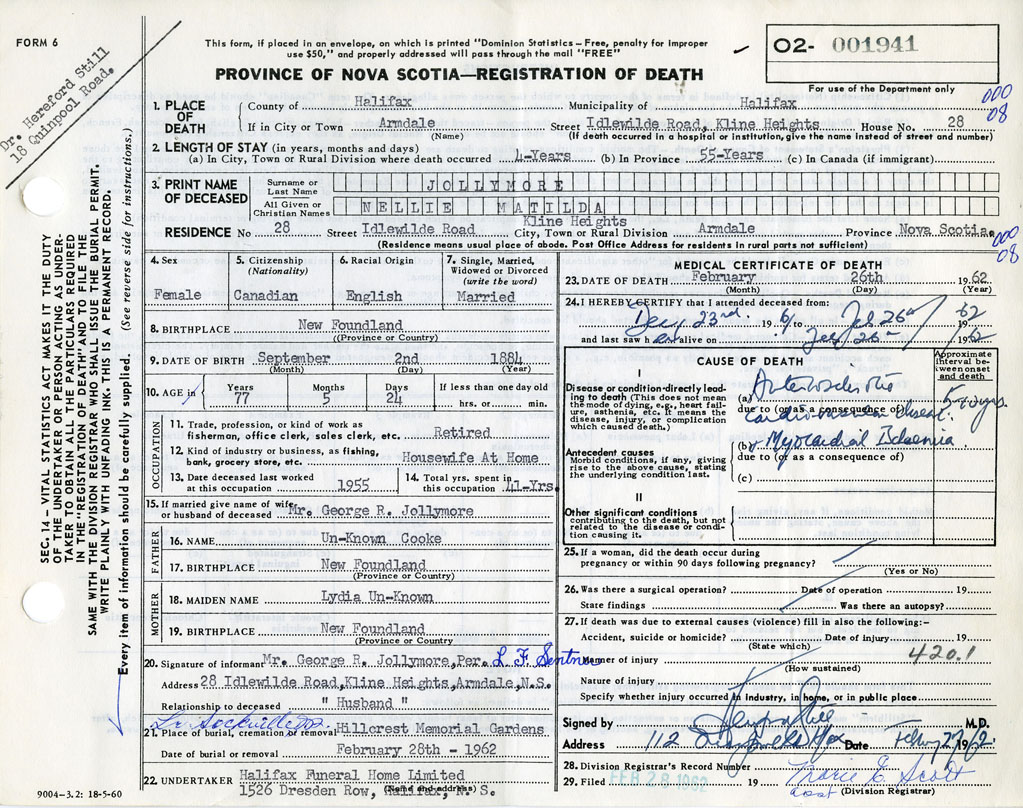 FORM 6
Dr. Hereford Still
18 Quinpool Road.
This form, if placed in an envelope, on which is printed "Dominion Statistics – Free, penalty for improper
use $50," and properly addressed will pass through the mail "FREE"
O2- 001941
PROVINCE OF NOVA SCOTIA—REGISTRATION OF DEATH
For use of the Department only
000
08
1. PLACE OF DEATH
County of Halifax Municipality of Halifax
If in City or Town Armdale Street Idlewilde Road, Kline Heights House No. 28
(Name) (If death occurred in a hospital or institution, give the name instead of street and number)
2. LENGTH OF STAY (in years, months and days)
(a) In City, Town or Rural Division where death occurred 4-Years (b) In Province 55-Years (c) In Canada (if immigrant)
3. PRINT NAME OF DECEASED
Surname or Last Name JOLLYMORE
All Given or Christian Names NELLIE MATILDA
Kline Heights
RESIDENCE No 28 Street Idlewilde Road City, Town or Rural Division Armdale Province Nova Scotia.
(Residence means usual place of abode. Post Office Address for residents in rural parts not sufficient)
000
08
SEC. 14 – VITAL STATISTICS ACT MAKES IT THE DUTY
OF THE UNDERTAKER OR PERSON ACTING AS UNDER-
TAKER TO OBTAIN ALL THE PARTICULARS REQUIRED
IN THE "REGISTRATION OF DEATH" AND TO FILE THE
SAME WITH THE DIVISION REGISTRAR WHO SHALL ISSUE THE BURIAL PERMIT.
WRITE PLAINLY WITH UNFADING INK. THIS IS A PERMANENT RECORD.
Every item of information should be carefully supplied. (See reverse side for instructions.)
4. Sex
Female
5. Citizenship
(Nationality)
Canadian
6. Racial Origin
English
7. Single, Married,
Widowed or Divorced
(write the word)
Married
8. BIRTHPLACE New Foundland
((Province or Country)
9. DATE OF BIRTH September 2nd 1884
(Month) (Day) (Year)
10. AGE in
Years 77
Months 5
Days 24
If less than one day old
hrs. or min.
OCCUPATION
11. Trade, profession, or kind of work as
fisherman, office clerk, sales clerk, etc. Retired
12. Kind of industry or business, as fishing,
bank, grocery store, etc. Housewife At Home
13. Date deceased last worked
at this occupation 1955
14. Total yrs. spent in
this occupation 41-Yrs.
15. If married give name of wife
or husband of deceased Mr. George R. Jollymore
FATHER
16. NAME Un-Known Cooke
17. BIRTHPLACE New Foundland
(Province or Country)
MOTHER
18. MAIDEN NAME Lydia Un-Known
19. BIRTHPLACE New Foundland
(Province or Country
20. Signature of informant Mr. George R. Jollymore, Per. L F Sentner
Address 28 Idlewilde Road, Kline Heights, Armdale, N.S.
Relationship to deceased " Husband "
Lr Sackville N.S.
21. Place of burial, cremation or removal Hillcrest Memorial Gardens
Date of burial or removal February 28th - 1962
22. UNDERTAKER Halifax Funeral Home Limited
1526 Dresden Row, Halifax, N. S.
(Name and address)
9004-3.2: 18-5-60
MEDICAL CERTIFICATE OF DEATH
23. DATE OF DEATH February 26th 1962
(Month) (Day) (Year)
24. I HEREBY CERTIFY that I attended deceased from:
Dec 23rd. 1961 to Feb 26th 1962
and last saw her alive on Feb 26th 1962
CAUSE OF DEATH
Approximate
interval be-
tween onset
and death
I
Disease or condition directly lead-
ing to death (This does not mean
the mode of dying, e.g., heart fail-
ure, asthenia, etc. It means the
disease, injury, or complication
which caused death.)
(a) Arteriosclerotic
due to (or as a consequence of)
cardiovascular disease. 5-10 yrs.
(b) Myocardial Ischemia
due to (or as a consequence of)
(c)
Antecedent causes
Morbid conditions, if any, giving
rise to the above cause, stating
the underlying condition last.
II
Other significant conditions
contributing to the death, but not
related to the disease or condi-
tion causing it.
25. If a woman, did the death occur during
pregnancy or within 90 days following pregnancy?
(Yes or No)
26. Was there a surgical operation? Date of operation 19
State findings Was there an autopsy?
27. If death was due to external causes (violence) fill in also the following:-
Accident, suicide or homicide? Date of injury 19
(State which)
420.1
Manner of injury
(How sustained)
Nature of injury
Specify whether injury occurred in industry, in home, or in public place
Signed by Hereford Still M.D.
Address 112 Hfax Date Feby 27 1962.
28. Division Registrar's Record Number
29. Filed FEB 28 1962 19 Marie E. Scott
asst (Division Registrar)